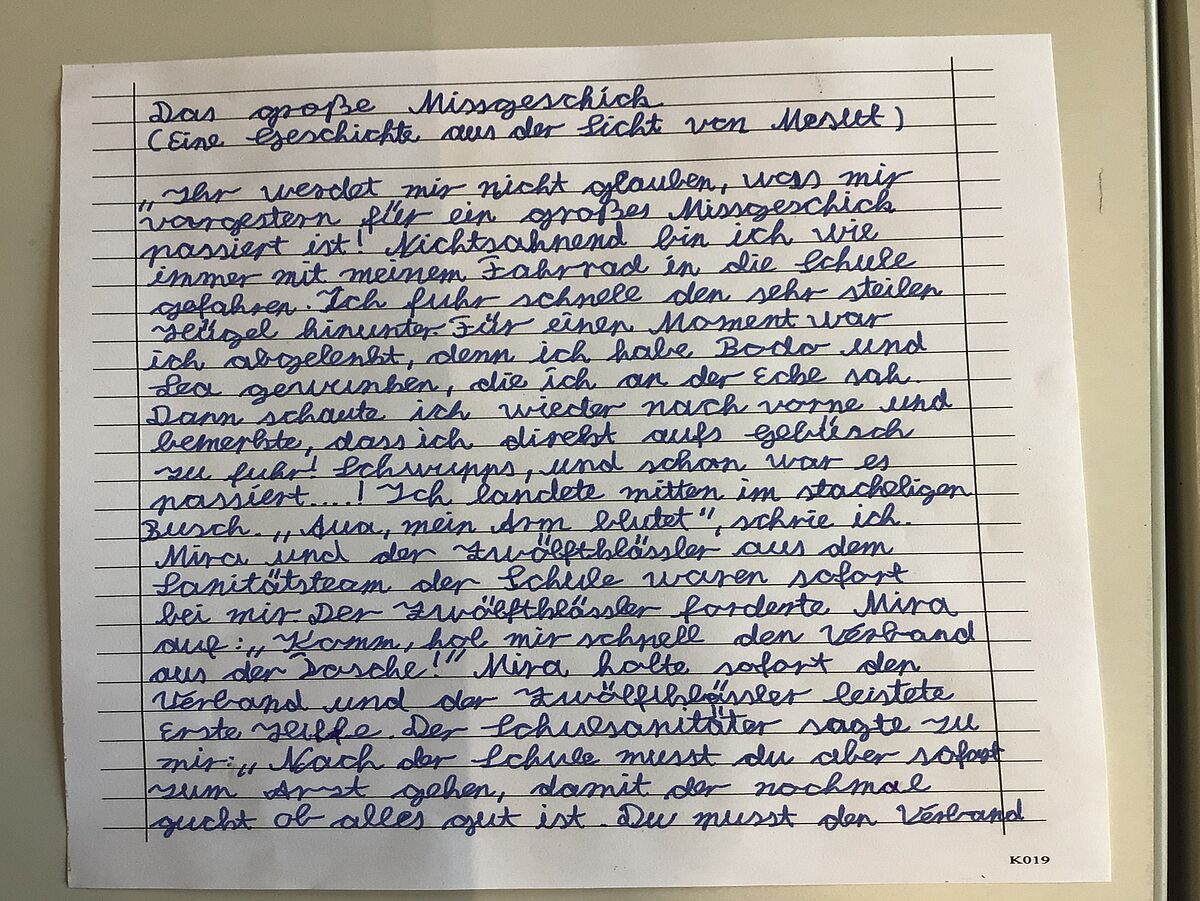 Das große Missgeschick
(Eine Geschichte aus der Sicht von Mesut)
„Ihr werdet mir nicht glauben, was mir
vorgestern für ein großes Missgeschick
passiert ist! Nichtsahnend bin ich wie
immer mit meinem Fahrrad in die Schule
gefahren. Ich fuhr schnell den sehr steilen
Hügel hinunter. Für einen Moment war
ich abgelenkt, denn ich habe Bodo und
Lea gewunken, die ich an der Ecke sah.
Dann schaute ich wieder nach vorne und
bemerkte, dass ich direkt aufs Gebüsch
zu fuhr! Schwupps, und schon war es
passiert....! Ich landete mitten im stacheligen
Busch. „Aua, mein Arm blutet", schrie ich.
Mira und der Zwölftklässler aus dem
Sanitätsteam der Schule waren sofort
bei mir. Der Zwölftklässler forderte Mira
auf: „Komm, hol mir schnell den Verband
aus der Tasche!" Mira holte sofort den
Verband und der Zwölftklässler leistete
Erste Hilfe. Der Schulsanitäter sagte zu
mir: „Nach der Schule musst du aber sofort
zum Arzt gehen, damit der nochmal
guckt ob alles gut ist. Du musst den Verband
K019